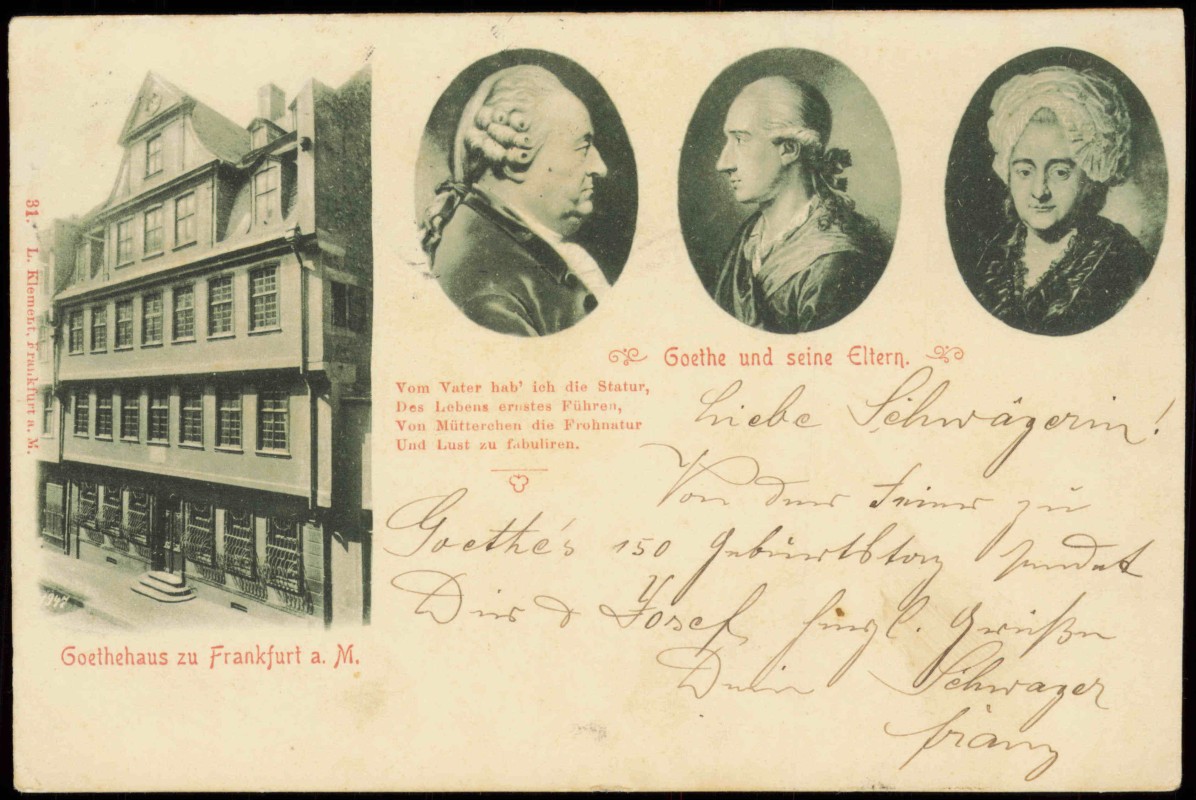 31. L. Klement, Frankfurt a. M.
1947
Goethehaus zu Frankfurt a. M.
Goethe und seine Eltern.
Vom Vater hab' ich die Statur,
Des Lebens ernstes Führen,
Von Mütterchen die Frohnatur
Und Lust zu fabuliren.
Liebe Schwägerin!
Von der Feier zu
Goethe's 150 Geburtstag sendet
Dir & Josef herzl. Grüße
Dein Schwager
Franz